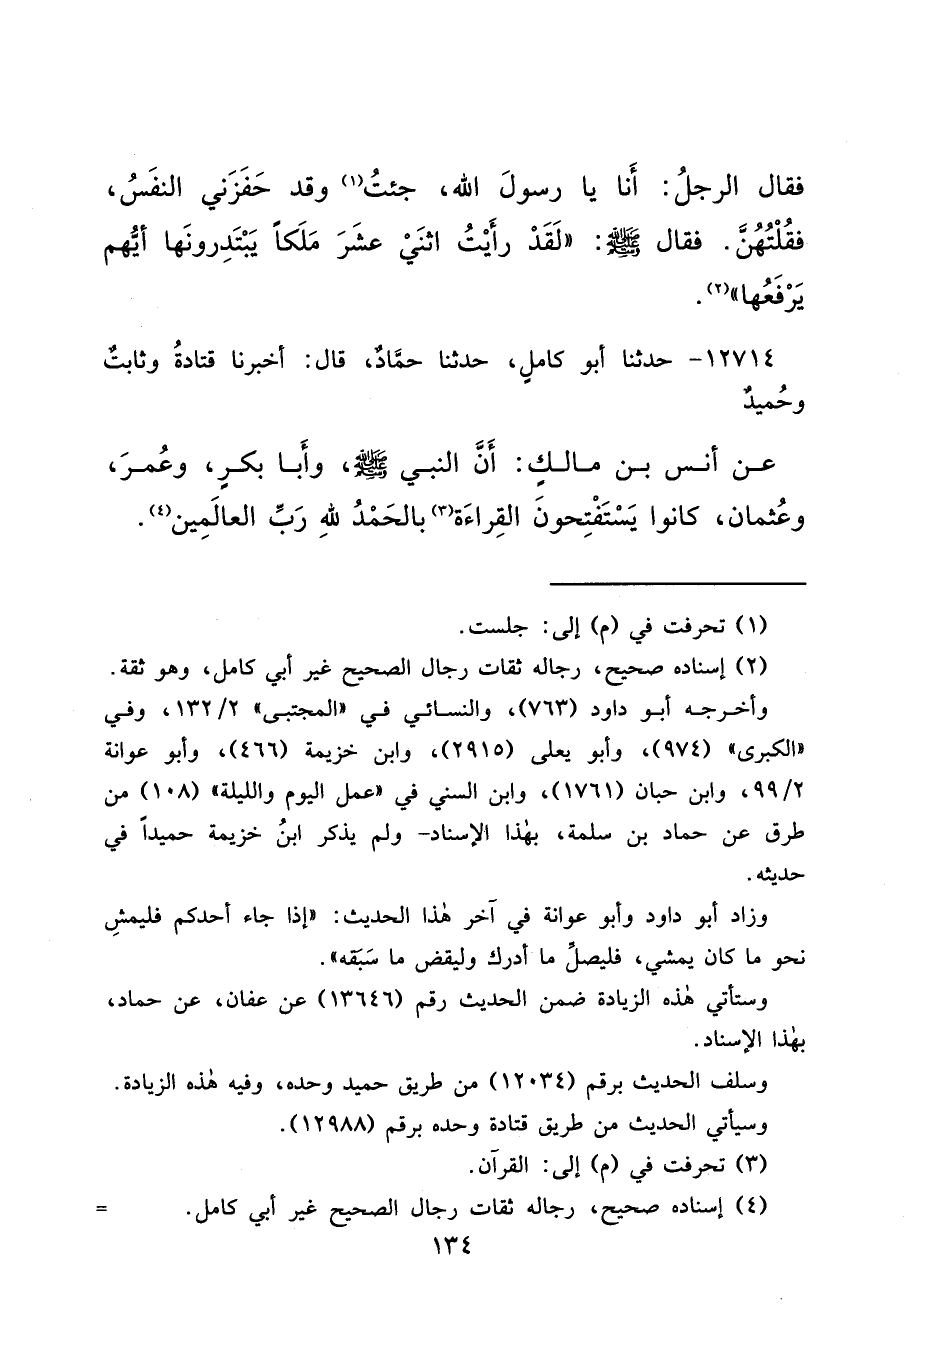 فقال الرجلُ: أَنا يا رسولَ الله، جئتُ(١) وقد حَفَزَني النفَسُ،
فقُلْتُهُنَّ. فقال ﷺ: «لَقَدْ رأَيْتُ اثنَيْ عشَرَ مَلَكاً يَبْتَدِرونَها أيُّهم
يَرْفَعُها»(٢).
١٢٧١٤- حدثنا أبو كاملٍ، حدثنا حمَّادٌ، قال: أخبرنا قتادةُ وثابتٌ
وحُميدٌ
عـن أنـس بـن مـالـكٍ: أَنَّ النبي ﷺ، وأَبـا بكـرٍ، وعُمـرَ،
وعُثمان، كانوا يَسْتَفْتِحونَ القِراءَة(٣) بالحَمْدُ للهِ رَبِّ العالَمِين(٤).
(١) تحرفت في (م) إلى: جلست.
(٢) إسناده صحيح، رجاله ثقات رجال الصحيح غير أبي كامل، وهو ثقة.
وأخرجه أبو داود (٧٦٣)، والنسائي في «المجتبى» ١٣٢/٢، وفي
«الكبرى» (٩٧٤)، وأبو يعلى (٢٩١٥)، وابن خزيمة (٤٦٦)، وأبو عوانة
٩٩/٢، وابن حبان (١٧٦١)، وابن السني في «عمل اليوم والليلة» (١٠٨) من
طرق عن حماد بن سلمة، بهٰذا الإسناد- ولم يذكر ابنُ خزيمة حميداً في
حديثه.
وزاد أبو داود وأبو عوانة في آخر هٰذا الحديث: «إذا جاء أحدكم فليمشِ
نحو ما كان يمشي، فليصلِّ ما أدرك وليقض ما سَبَقه».
وستأتي هٰذه الزيادة ضمن الحديث رقم (١٣٦٤٦) عن عفان، عن حماد،
بهٰذا الإسناد.
وسلف الحديث برقم (١٢٠٣٤) من طريق حميد وحده، وفيه هٰذه الزيادة.
وسيأتي الحديث من طريق قتادة وحده برقم (١٢٩٨٨).
(٣) تحرفت في (م) إلى: القرآن.
(٤) إسناده صحيح، رجاله ثقات رجال الصحيح غير أبي كامل. =
١٣٤